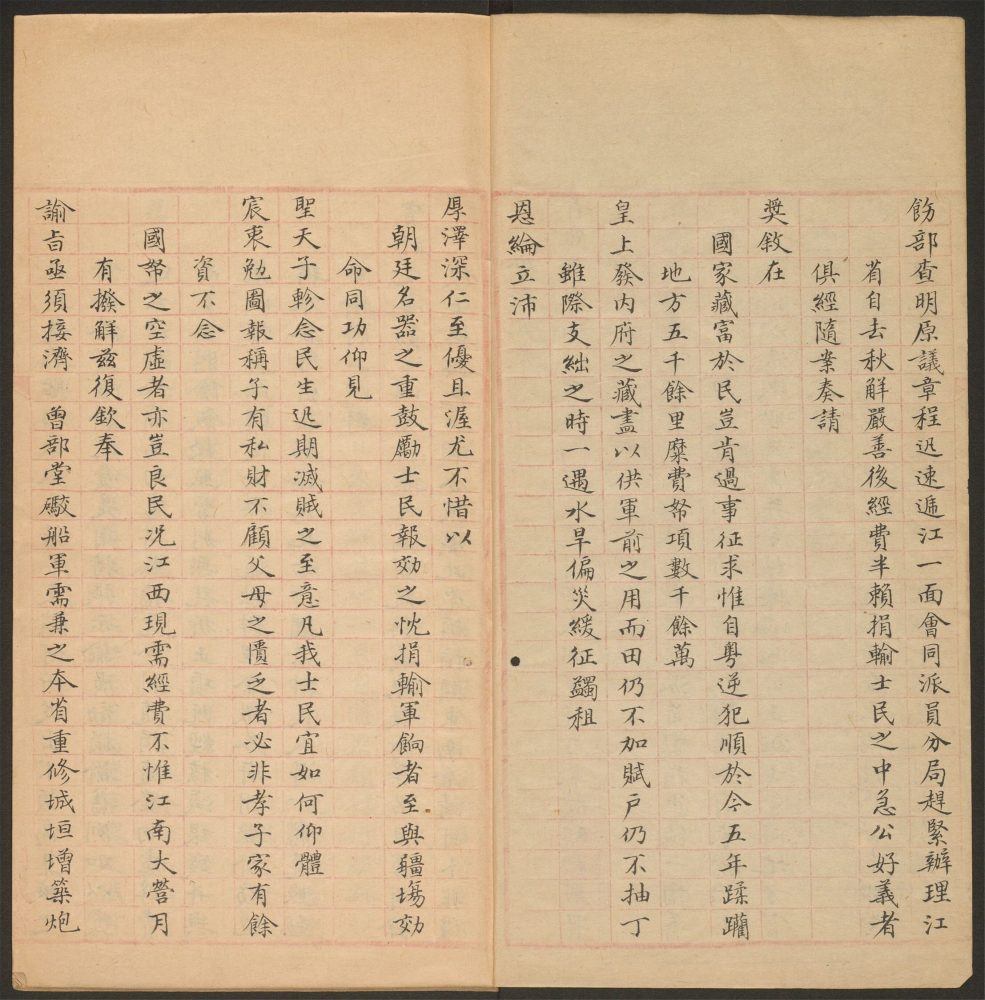 飭部查明原議章程迅速遞江一面會同派員分局趕緊辦理江
省自去秋解嚴善後經費半賴捐輸士民之中急公好義者
俱經隨案奏請
奬敘在
國家藏富於民豈肯過事征求惟自粵逆犯順於今五年蹂躪
地方五千餘里糜費帑項數千餘萬
皇上發內府之藏盡以供軍前之用而田仍不加賦戶仍不抽丁
雖際支絀之時一遇水旱偏災緩征蠲租
恩綸立沛
厚澤深仁至優且渥尤不惜以
朝廷名器之重鼓勵士民報効之忱捐輸軍餉者至與疆塲効
命同功仰見
聖天子軫念民生迅期滅賊之至意凡我士民宜如何仰體
宸衷勉圖報稱子有私財不顧父母之匱乏者必非孝子家有餘
資不念
國帑之空虛者亦豈良民況江西現需經費不惟江南大營月
有撥解兹復欽奉
諭旨亟須接濟 曾部堂礮船軍需兼之本省重修城垣增築炮